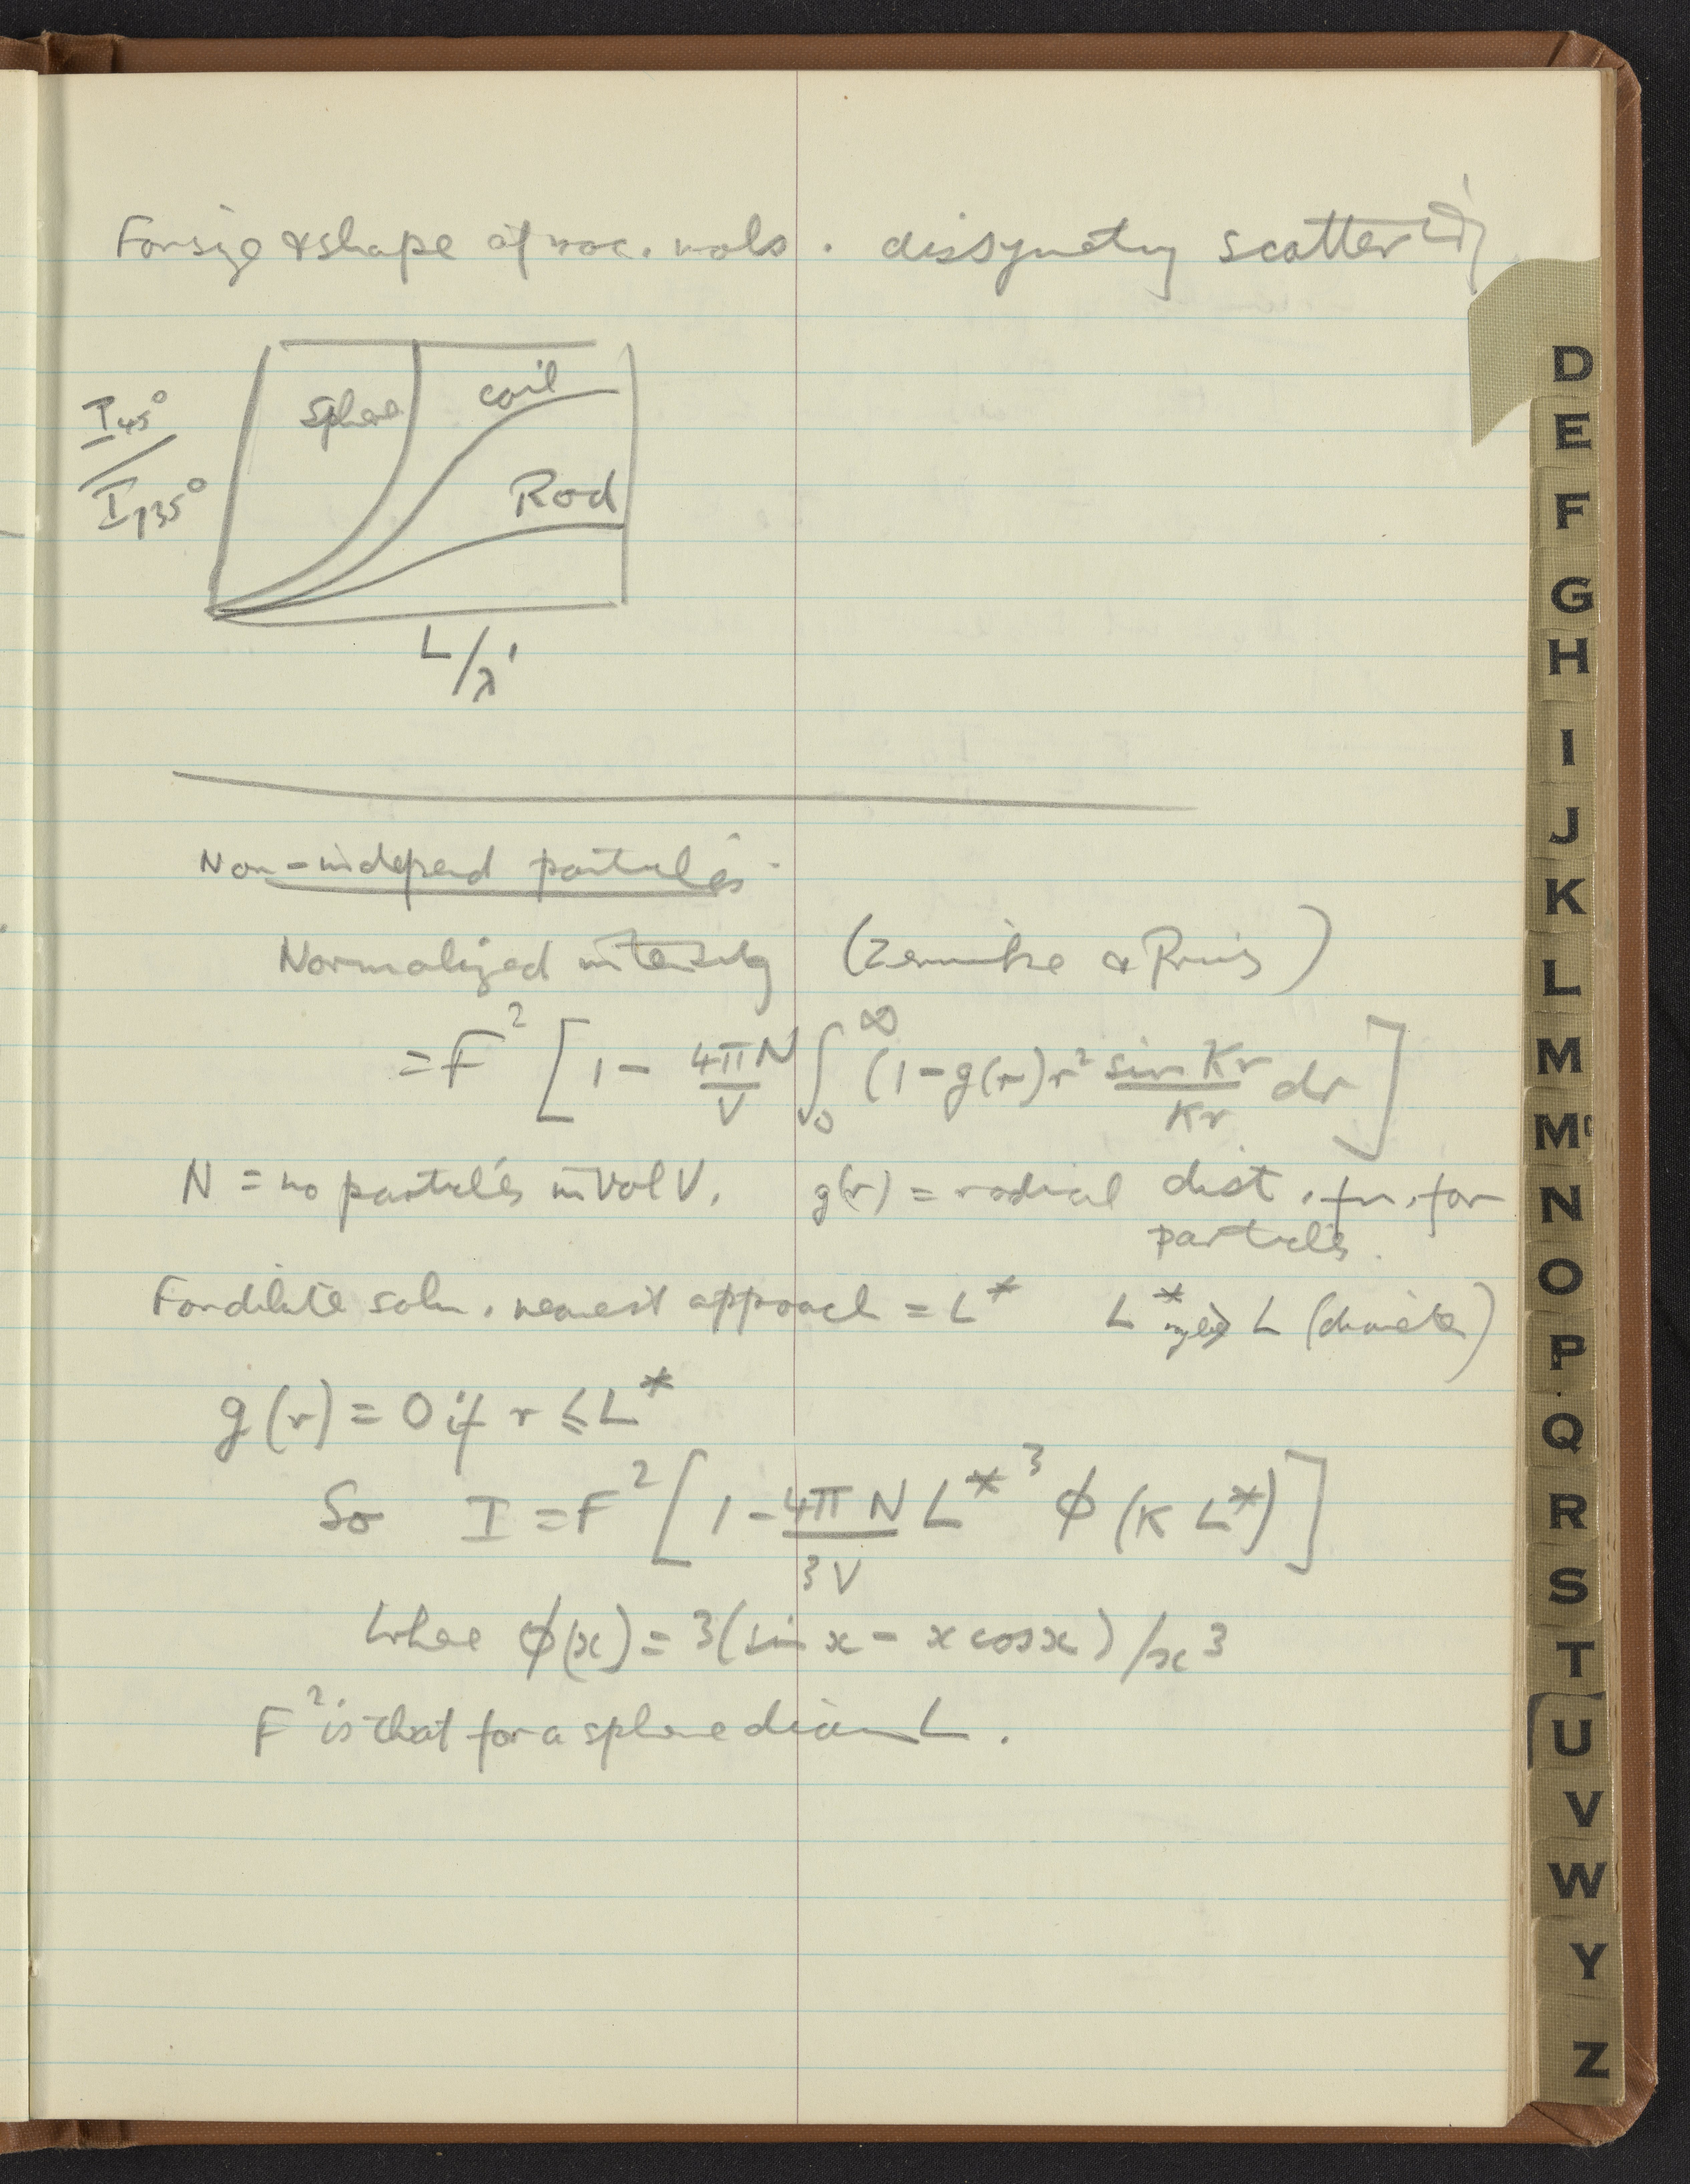 For size & shape of mac. mols. dissymetry scattering
I45°
/
I135°
Sphere
coil
Rod
L/λ'
Non-independ particles.
Normalized intensity (Zernike & Prins)
= F² [1 - 4πN/V ∫₀^∞ (1-g(r)) r² sin Kr/Kr dr]
N = no particles in Vol V. g(r) = radial dist. fn. for
particles.
For dilute soln. nearest approach = L* L* L (diameter)
g(r) = 0 if r ≤ L*
So I = F² [1 - 4πN/3V L*³ ϕ(K L*)]
where ϕ(x) = 3(sin x - x cos x)/x³
F² is that for a sphere diam L.
D
E
F
G
H
I
J
K
L
M
Mc
N
O
P
Q
R
S
T
U
V
W
Y
Z